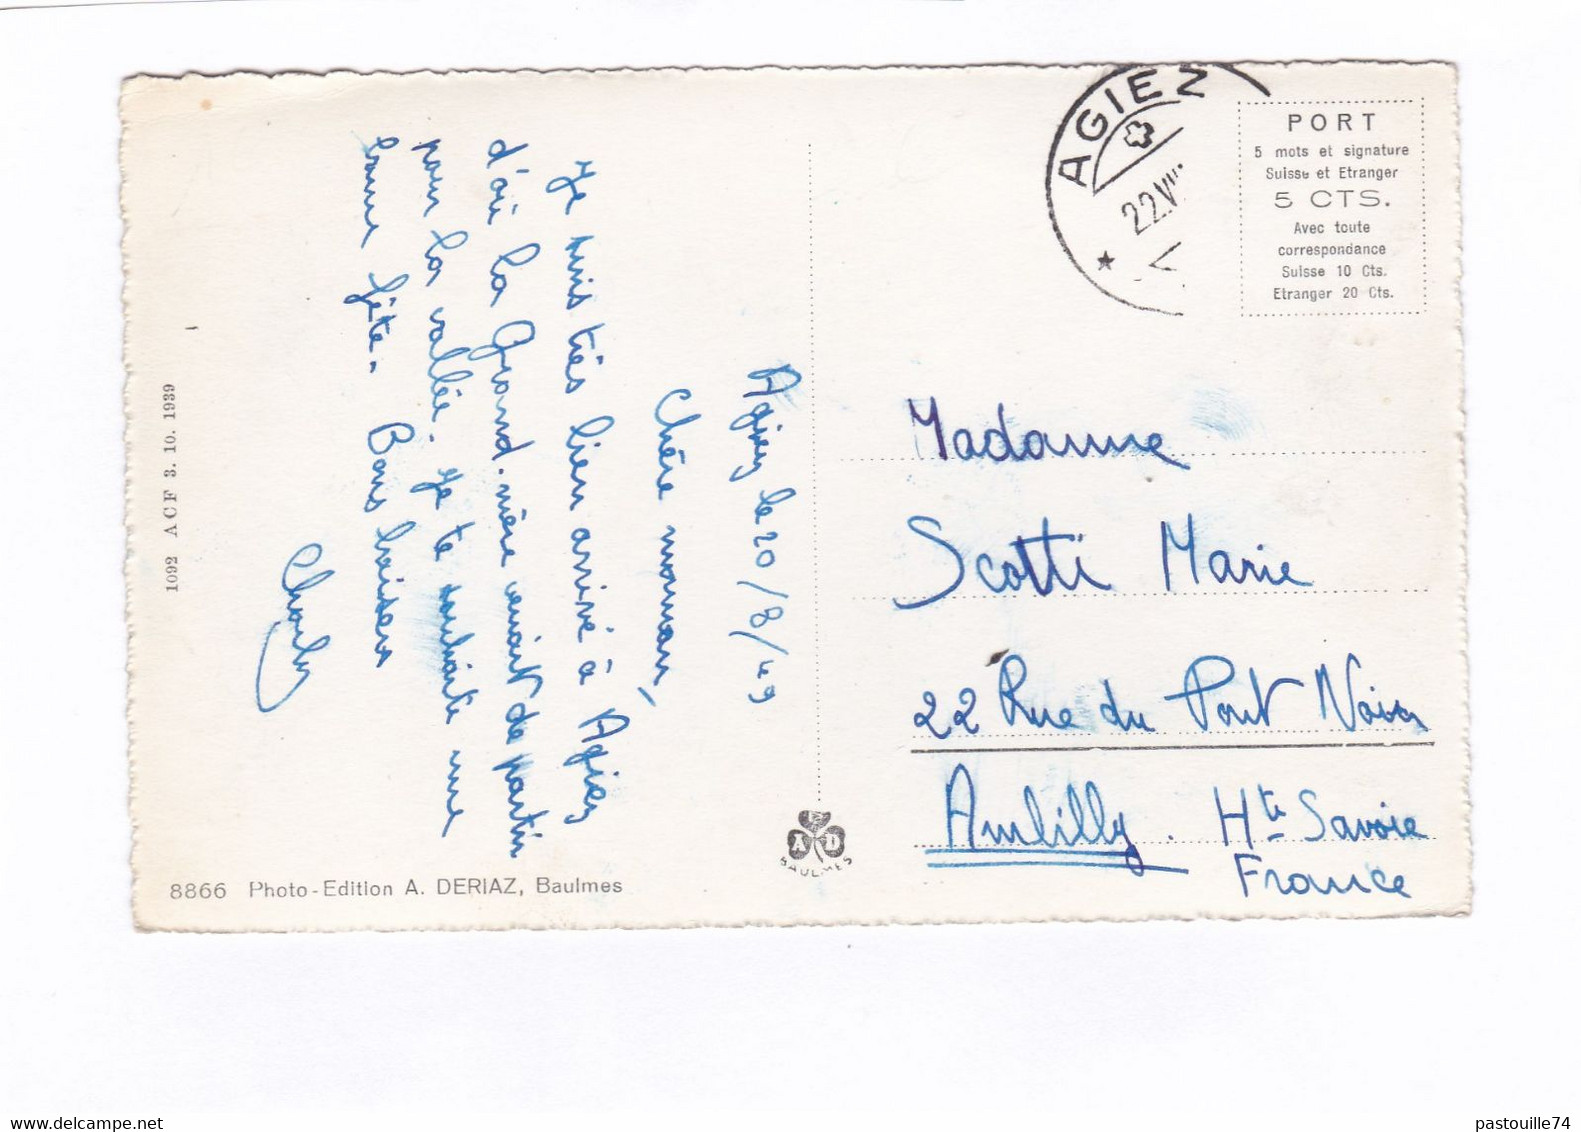 Agiez le 20/8/49
Chère maman,
Je suis très bien arrivé à Agiez
d'où la Grand-mère venait de partir
pour la vallée. Je te souhaite une
bonne fête. Bons baisers
Charly
1092 ACF 3. 10. 1939
8866 Photo-Edition A. DERIAZ, Baulmes
A D
BAULMES
AGIEZ
22.VIII
PORT
5 mots et signature
Suisse et Etranger
5 CTS.
Avec toute
correspondance
Suisse 10 Cts.
Etranger 20 Cts.
Madame
Scotti Marie
22 Rue du Pont Noir
Ambilly. Hte Savoie
France
pastouille74